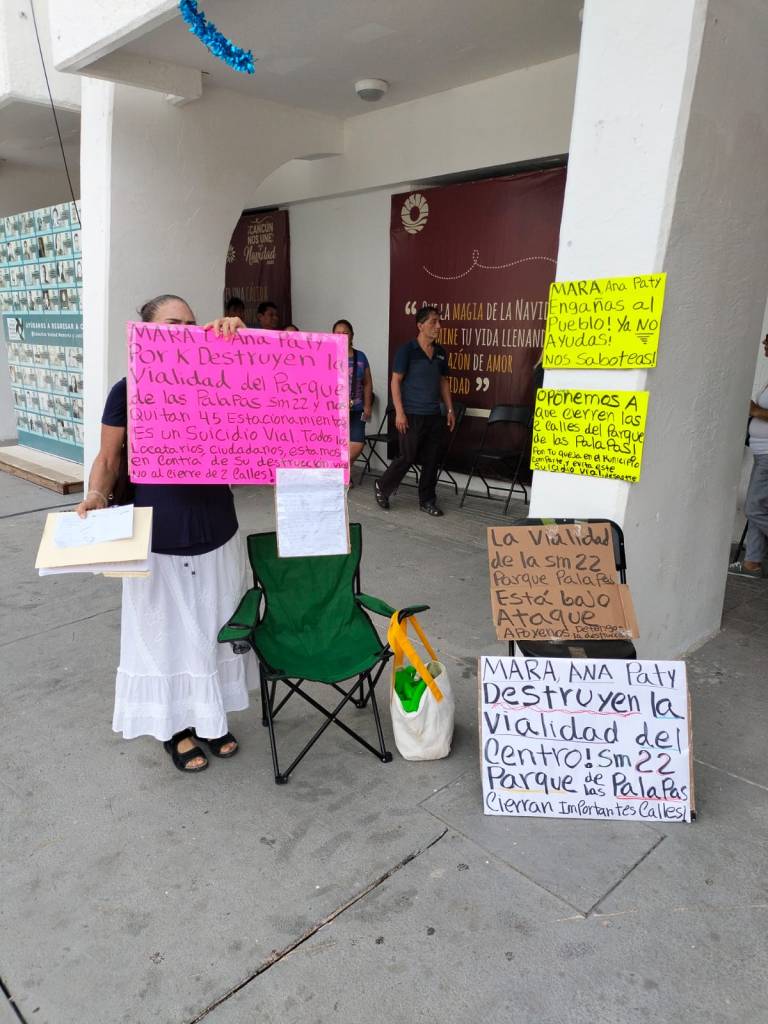 ¡CANCÚN
NOS UNE!
Navidad
LA MAGIA DE LA NAVI
INE TU VIDA LLENAN
AZÓN DE AMOR
IDAD
AYÚDANOS A REGRESAR A C
MARA, Ana Paty
Por K Destruyen la
Vialidad del Parque
de las Palapas sm22 y nos
Quitan 45 Estacionamientos
Es un Suicidio Vial. Todos los
Locatarios, ciudadanos, estamos
en contra de su destrucción vial
No al cierre de 2 Calles!
MARA, Ana Paty
Engañas al
Pueblo! Ya NO
Ayudas!
Nos Saboteas!
Oponemos A
que cierren las
2 calles del Parque
de las Palapas!
Pon tu queja en el Municipio
Comparte y evita este
Suicidio vial
La Vialidad
de la Sm 22
Parque Palapas
Está bajo
Ataque
Apoyenos Detengan
la destrucción
MARA, ANA Paty
Destruyen la
Vialidad del
Centro! Sm 22
Parque de las Palapas
Cierran Importantes Calles!